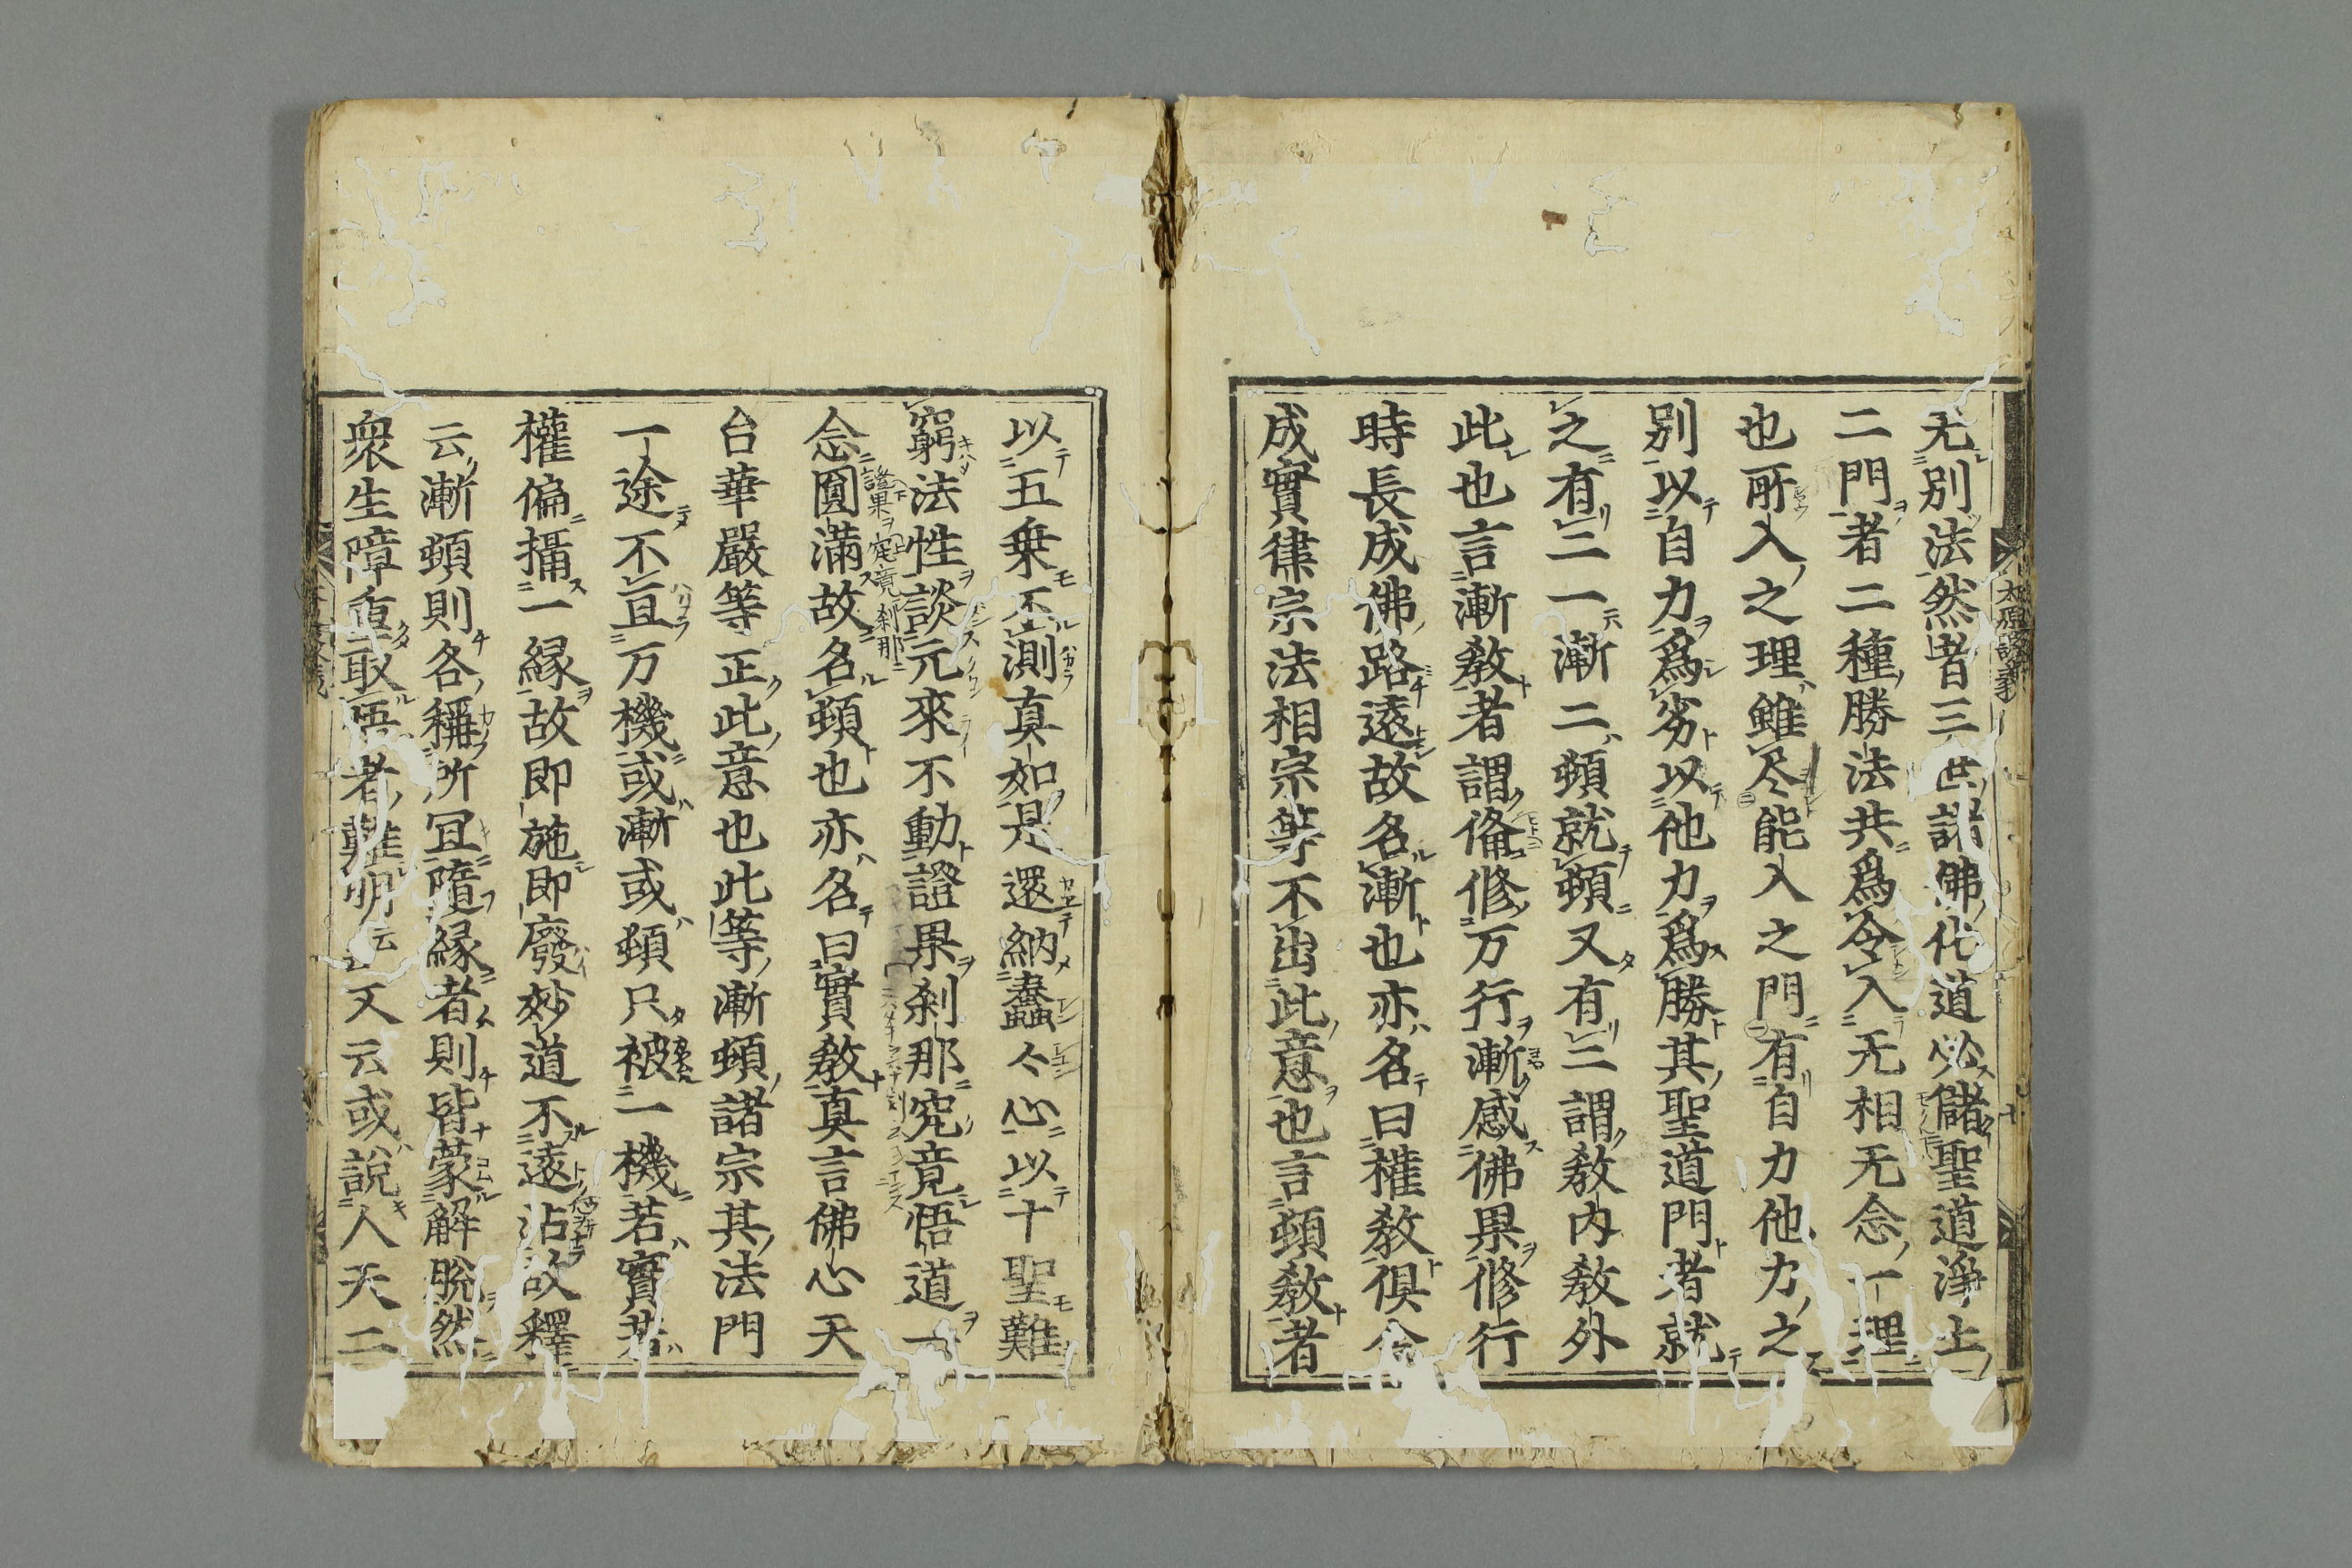 无別法然者三世諸佛化道必儲聖道淨土
二門者二種勝法共爲令入无相无念一理
也所入之理雖尽能入之門有自力他力之
別以自力爲劣以他力爲勝其聖道門者就
之有二一漸二頓就頓又有二謂教内教外
此也言漸教者謂俻修万行漸感佛果修行
時長成佛路遠故名漸也亦名曰權教俱舎
成實律宗法相宗等不出此意也言頓教者
以五乗不測真如是還納蠢々心以十聖難
窮法性談元來不動證果刹那究竟悟道一
念圓滿故名頓也亦名曰實教真言佛心天
台華嚴等正此意也此等漸頓諸宗其法門
一途不宜万機或漸或頓只被一機若實若
權偏攝一縁故即施即廢妙道不遠沾故釋
云漸頓則各稱所冝隨縁者則皆蒙解脱然
衆生障重取悟者難明云云又云或説人天二